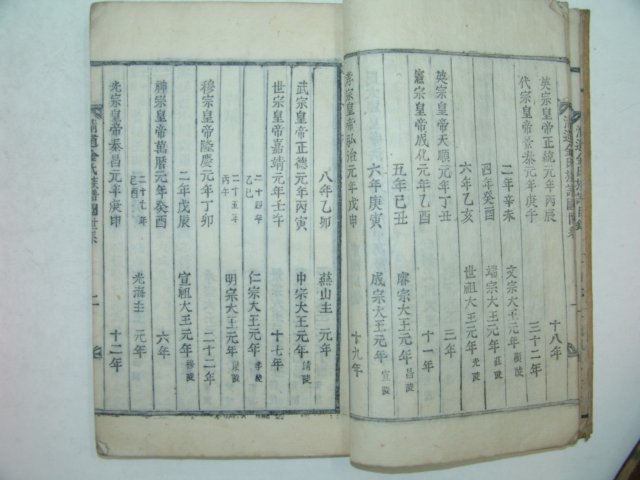 英宗皇帝正統元年丙辰 十八年
代宗皇帝景泰元年庚午 三十二年
二年辛未 文宗大王元年 顯陵
四年癸酉 端宗大王元年 莊陵
六年乙亥 世祖大王元年 光陵
英宗皇帝天順元年丁丑 三年
憲宗皇帝成化元年乙酉 十一年
五年己丑 睿宗大王元年 昌陵
六年庚寅 成宗大王元年 宣陵
孝宗皇帝弘治元年戊申 十九年
八年乙卯 燕山主 元年
武宗皇帝正德元年丙寅 中宗大王元年 靖陵
世宗皇帝嘉靖元年壬午 十七年
二十四年乙巳 仁宗大王元年 孝陵
丙午 明宗大王元年 康陵
穆宗皇帝隆慶元年丁卯 二十二年
二年戊辰 宣祖大王元年 穆陵
神宗皇帝萬曆元年癸酉 六年
己酉 光海主 元年
光宗皇帝泰昌元年庚申 十二年
清道金氏族譜圖世系 二